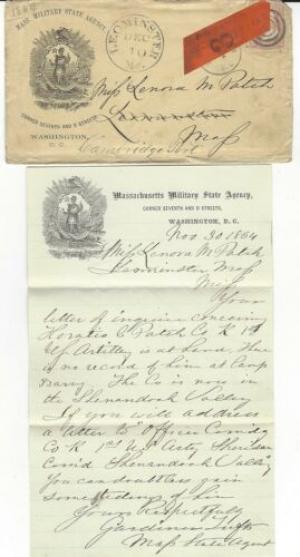 MASS. MILITARY STATE AGENCY,
LEOMINSTER
DEC
10
Ms.
3
Miss Lenora M Patch
Leominster
Mass
CORNER SEVENTH AND D STREETS,
WASHINGTON,
D. C.
Cambridge Port
Massachusetts Military State Agency,
CORNER SEVENTH AND D STREETS,
WASHINGTON, D. C.
Nov 30 1864
Miss Lenora M Patch
Leominster Mass
Miss
Your
letter of inquiry concerning
Horatio C Patch Co K 1st
Artillery is at hand, there
is no record of him at Camp
Barry. The Co is now in
the Shenandoah Valley
If you will address
a letter to Officer Comdg
Co K 1st U.S. Arty Sheridan
Comd Shenandoah Valley
You can doubtless gain
some tidings of him
Yours Respectfully
Gardiner Tufts
Mass State Agent